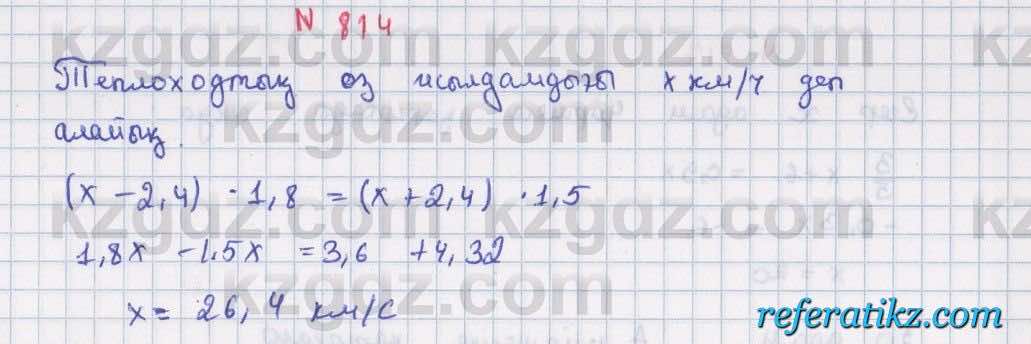 N 814
Теплоходтың өз жылдамдығы х км/ч деп
алайық.
(х - 2,4) · 1,8 = (х + 2,4) · 1,5
1,8х - 1,5х = 3,6 + 4,32
х = 26,4 км/с
kzgdz.com
referatikz.com